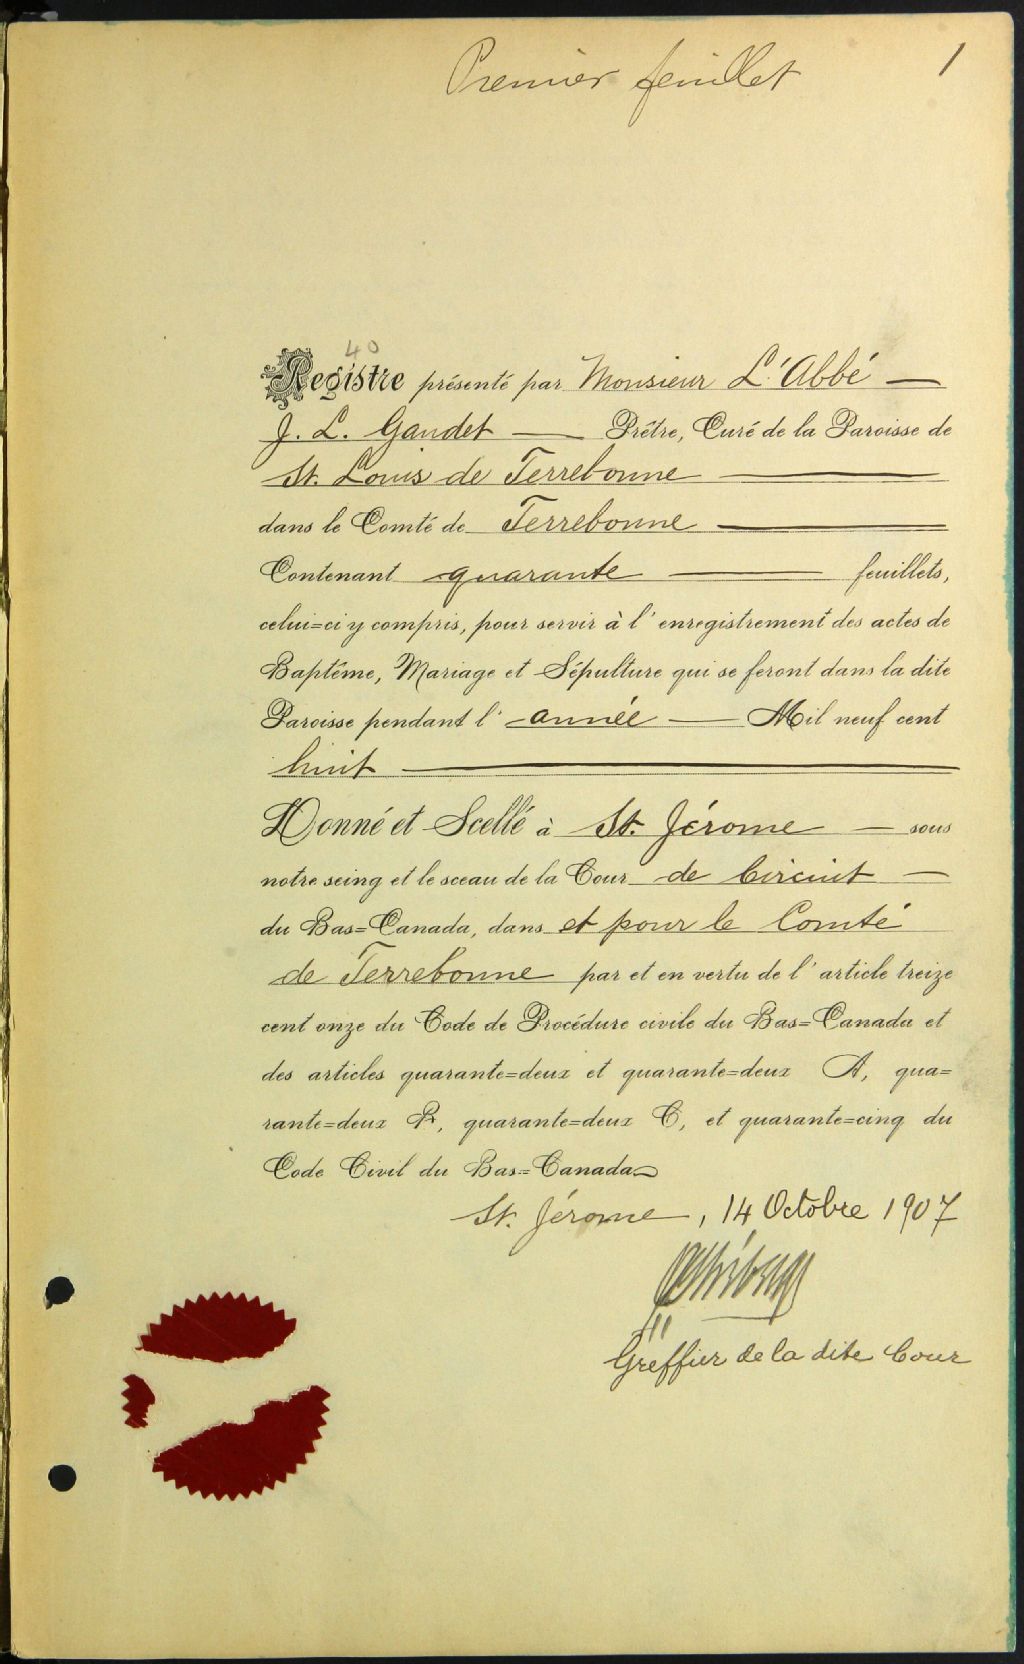 Premier feuillet
1
40
Registre présenté par Monsieur L'Abbé
J. L. Gaudet Prêtre, Curé de la Paroisse de
St. Louis de Terrebonne
dans le Comté de Terrebonne
Contenant quarante feuillets,
celui=ci y compris, pour servir à l'enregistrement des actes de
Baptême, Mariage et Sépulture qui se feront dans la dite
Paroisse pendant l'année Mil neuf cent
huit
Donné et Scellé à St. Jérome sous
notre seing et le sceau de la Cour de Circuit
du Bas=Canada, dans et pour le Comté
de Terrebonne par et en vertu de l'article treize
cent onze du Code de Procédure civile du Bas=Canada et
des articles quarante=deux et quarante=deux A, qua=
rante=deux B, quarante=deux C, et quarante=cinq du
Code Civil du Bas=Canada
St. Jérome, 14 Octobre 1907
Greffier de la dite Cour